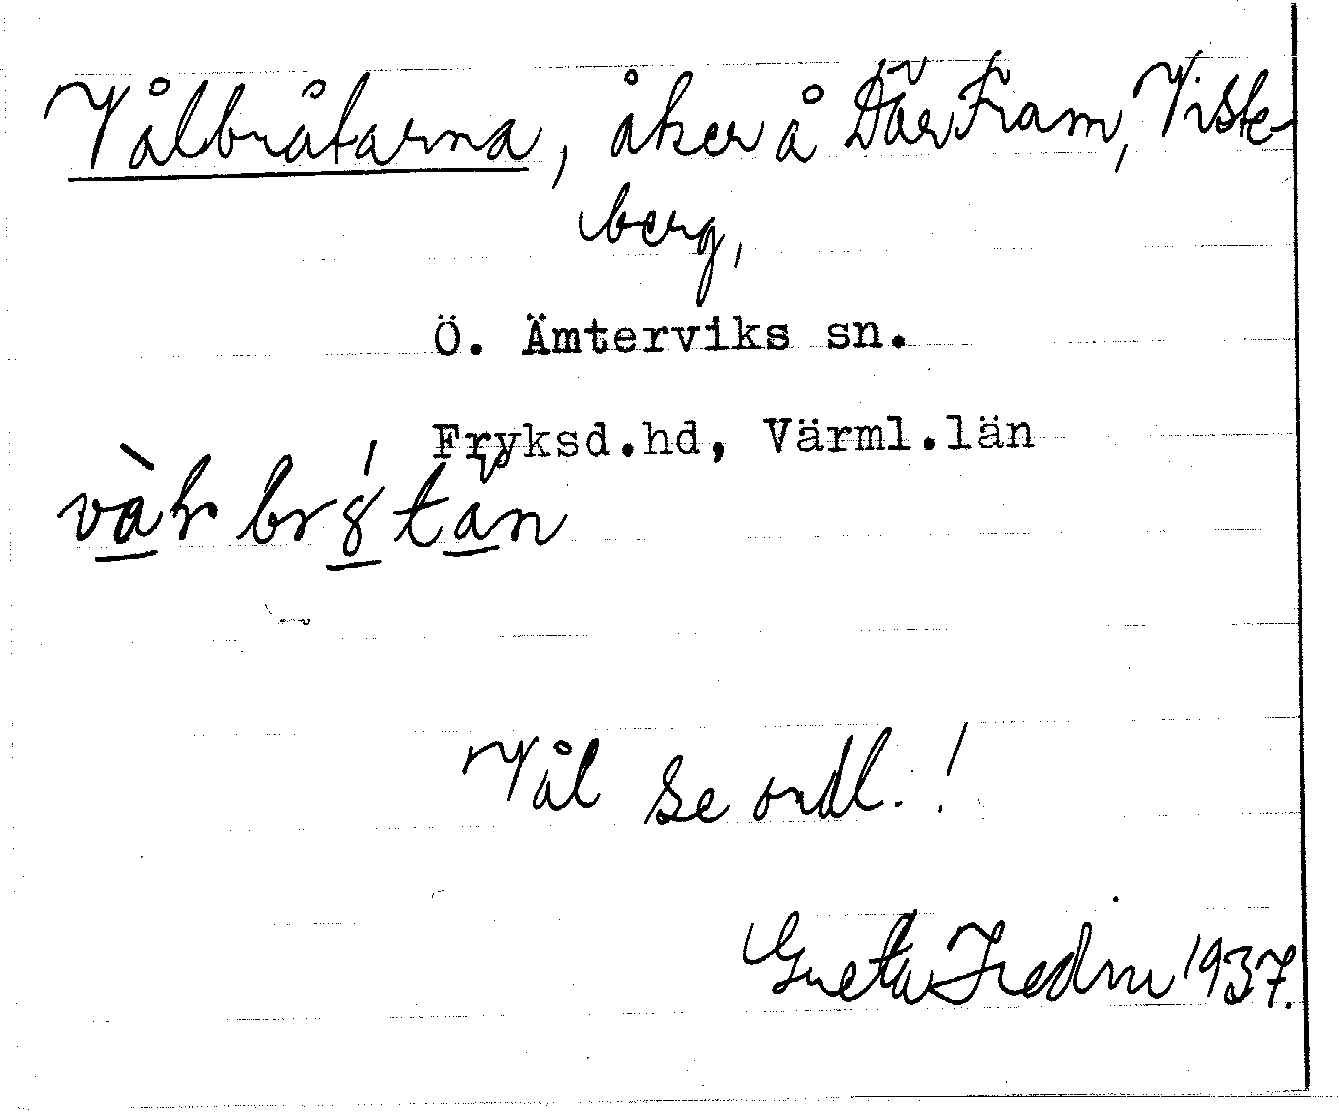 Vålbråtarna, åker å Där Fram, Viste-
berg,
Ö. Ämterviks sn.
Fryksd.hd, Värml.län
Vål se ordl.!
Greta Fredin 1937.